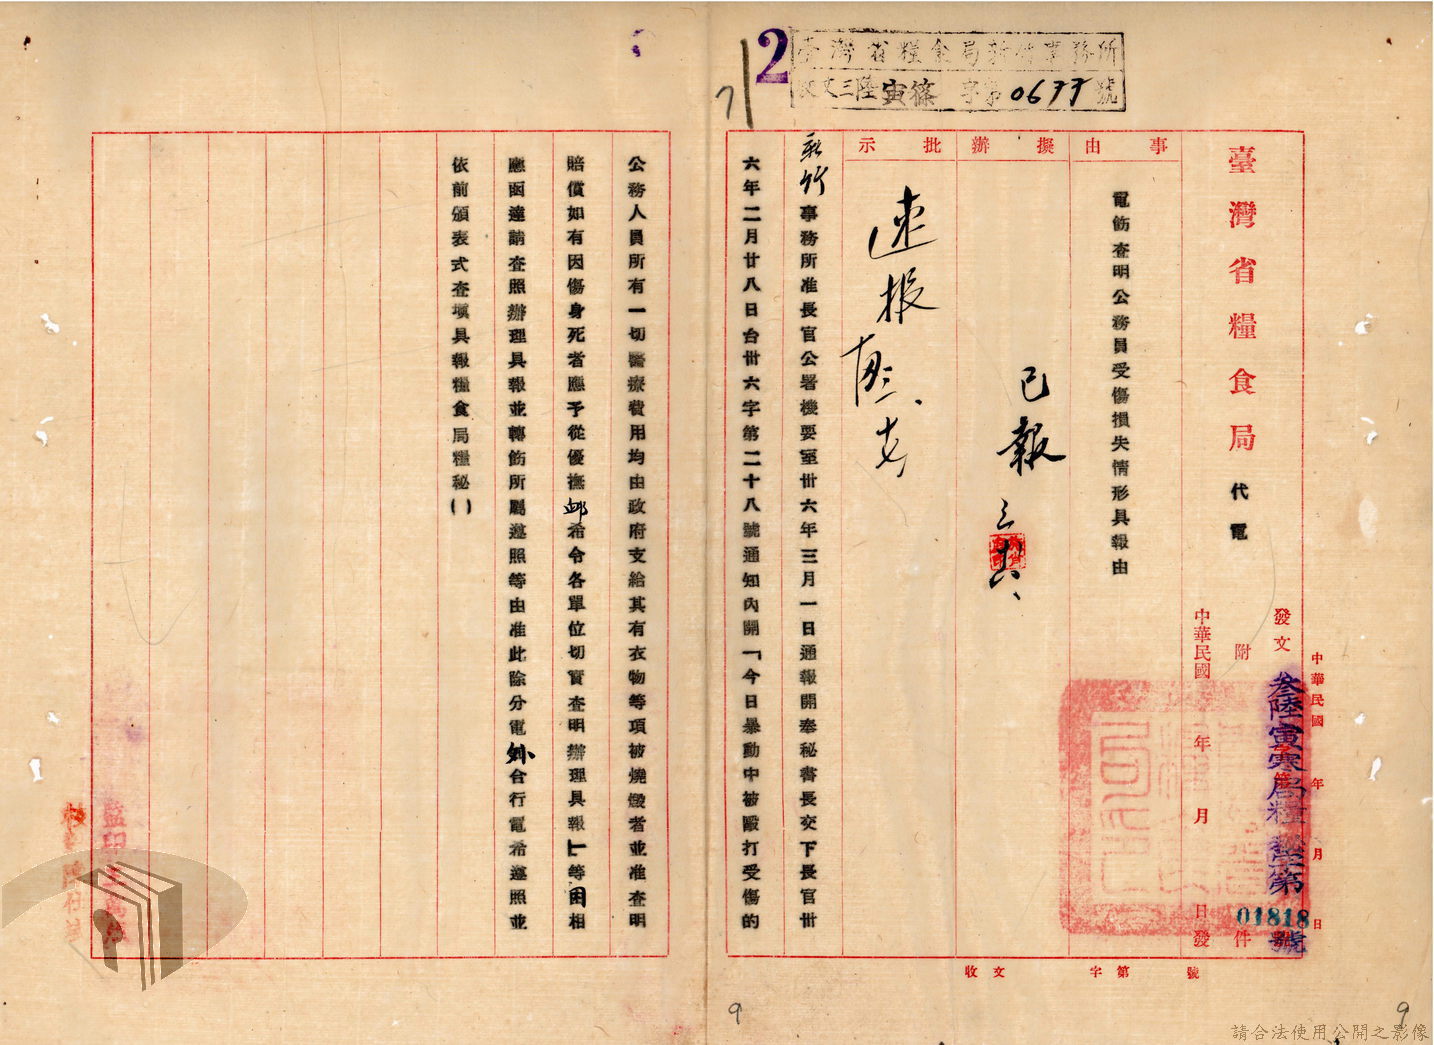 2
臺灣省糧食局新竹事務所
收文三陸寅篠字第0677號
臺灣省糧食局代電
中華民國 年 月 日
發文
叁陸寅寒局糧秘第
01818
號
附 件
中華民國 年 月 日發
事由
電飭查明公務員受傷損失情形具報由
擬辦
已報
批示
速報
新竹事務所准長官公署機要室卅六年三月一日通報開奉秘書長交下長官卅
六年二月廿八日台卅六字第二十八號通知內開「今日暴動中被毆打受傷的
公務人員所有一切醫療費用均由政府支給其有衣物等項被燒燬者並准查明
賠償如有因傷身死者應予從優撫卹希令各單位切實查明辦理具報」等因相
應函達請查照辦理具報並轉飭所屬遵照等由准此除分電外合行電希遵照並
依前頒表式查填具報糧食局糧秘()
收文 字第 號
9
9
請合法使用公開之影像